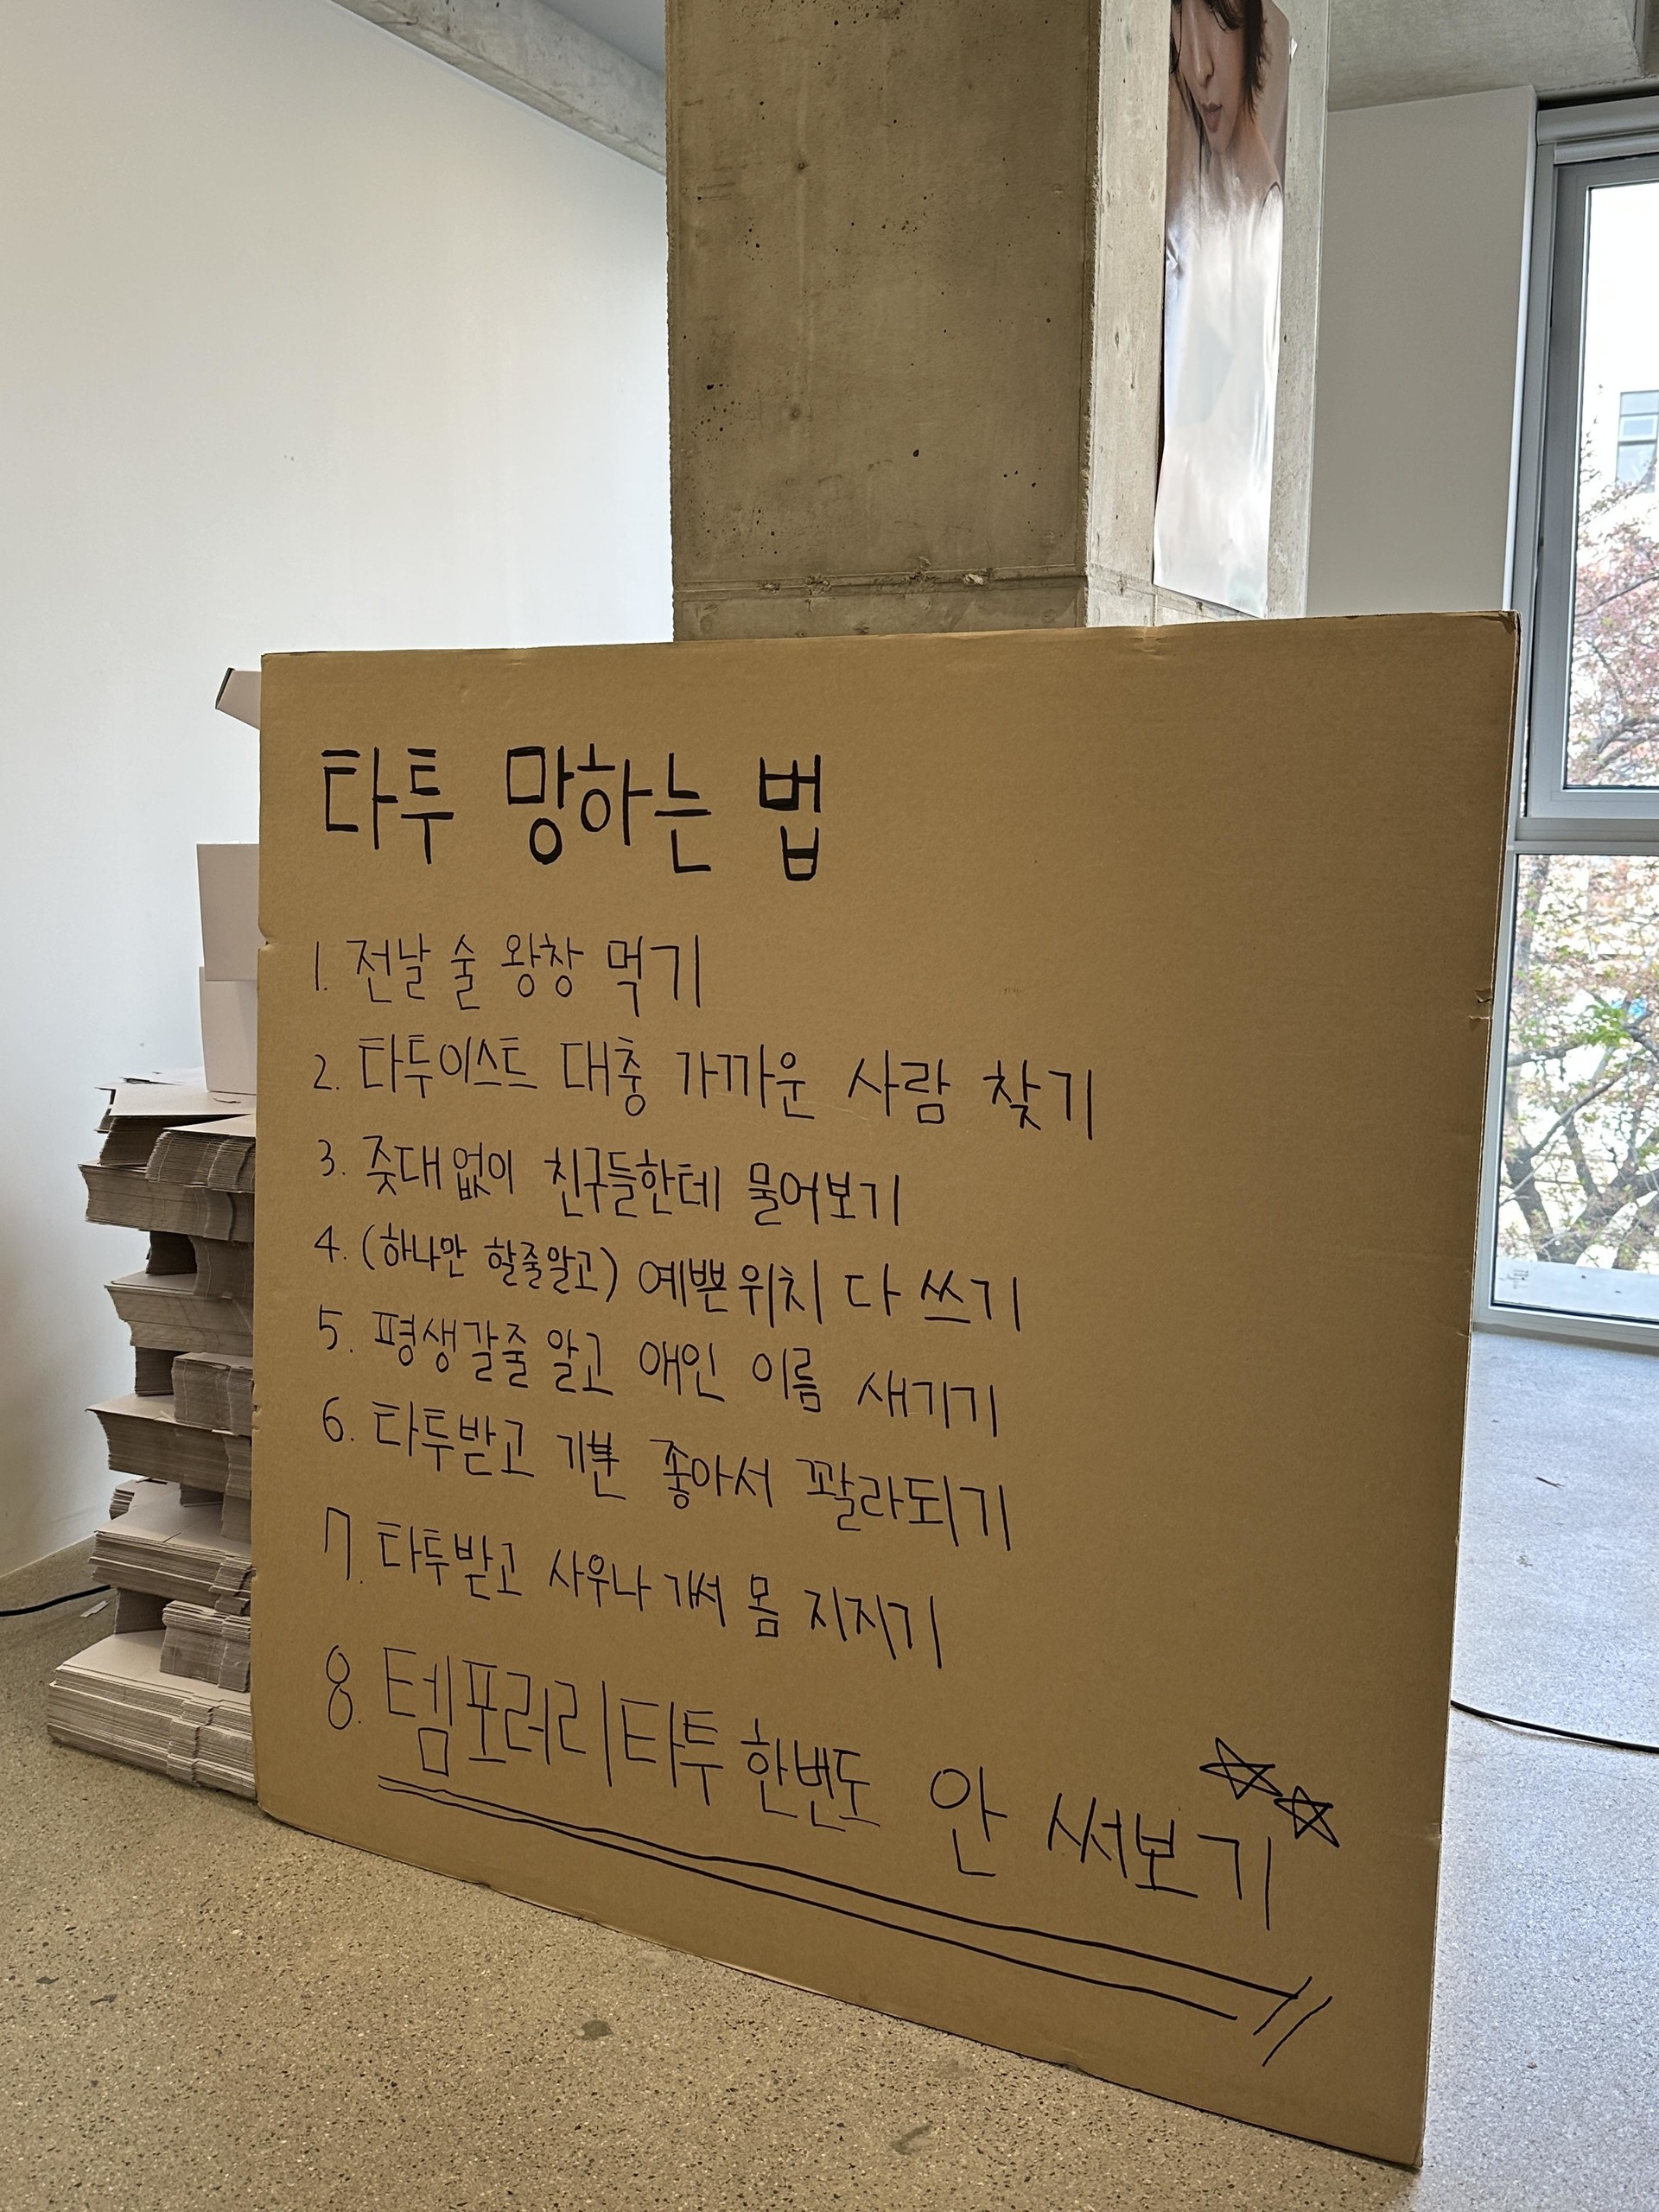 타투 망하는 법
1. 전날 술 왕창 먹기
2. 타투이스트 대충 가까운 사람 찾기
3. 줏대없이 친구들한테 물어보기
4. (하나만 할줄알고) 예쁜위치 다 쓰기
5. 평생갈줄 알고 애인 이름 새기기
6. 타투받고 기분 좋아서 꽐라되기
7. 타투받고 사우나 가서 몸 지지기
8. 템포러리타투 한번도 안 써보기